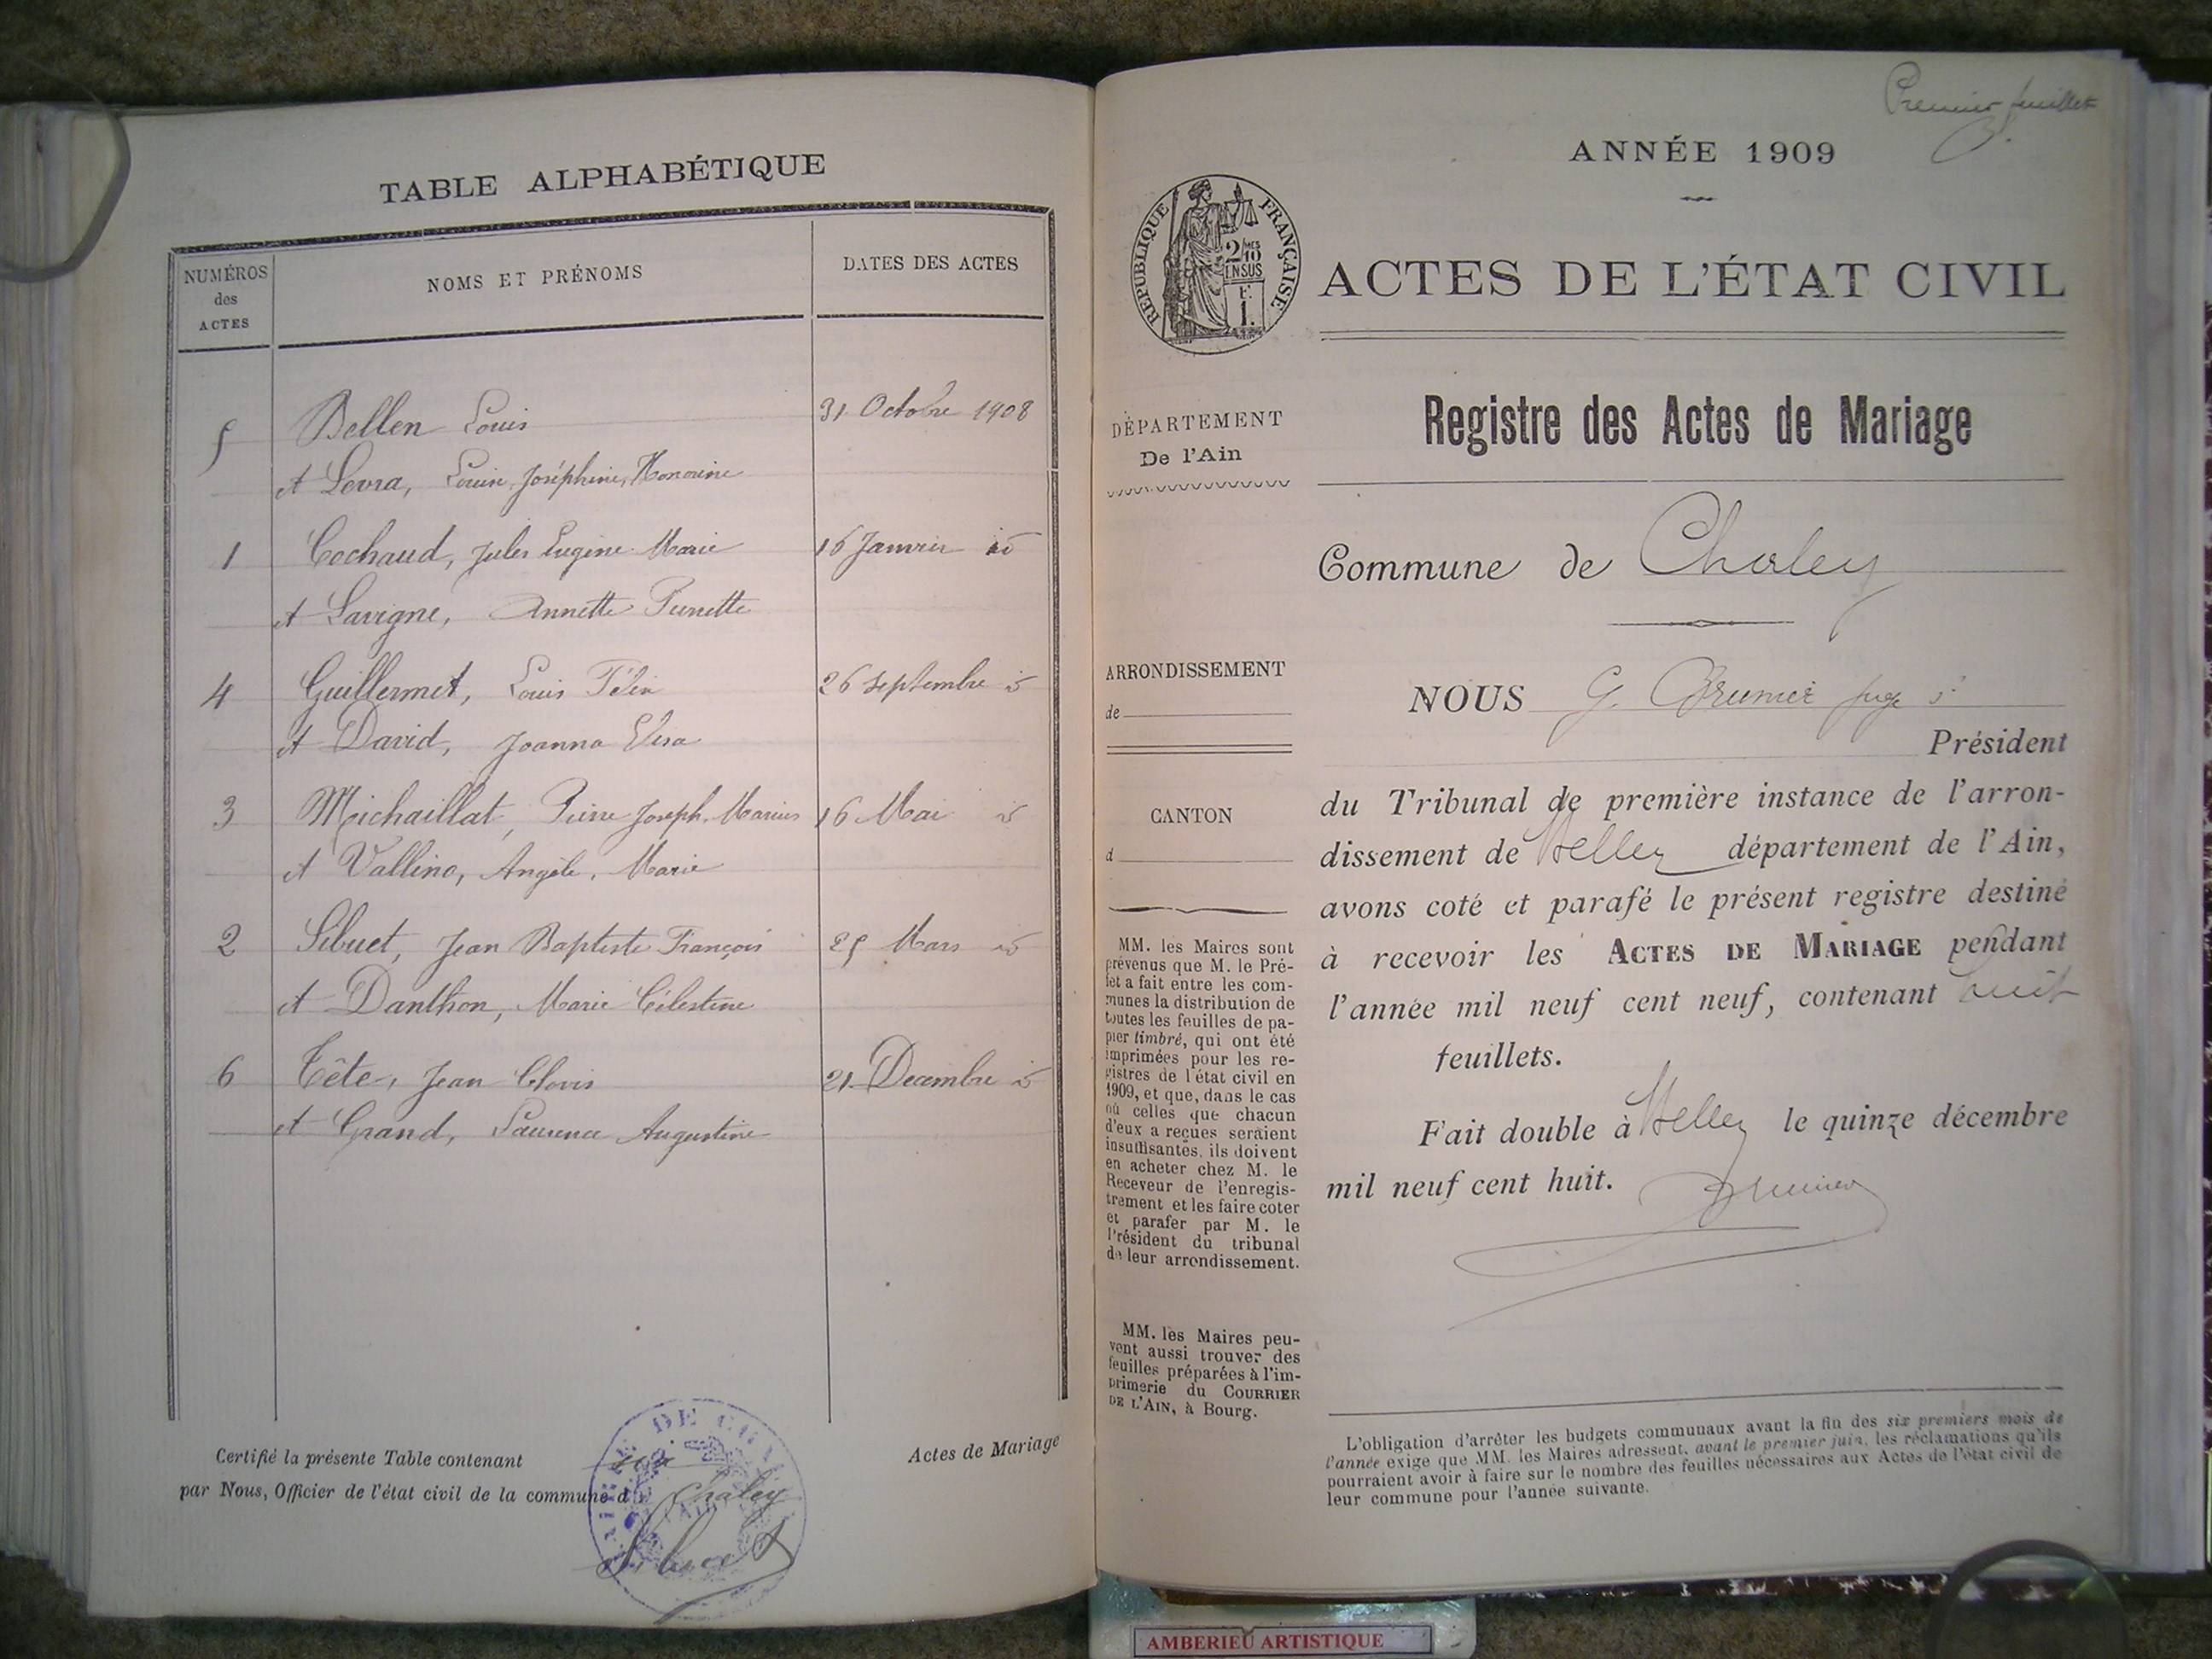 TABLE ALPHABÉTIQUE
NUMÉROS des ACTES
NOMS ET PRÉNOMS
DATES DES ACTES
5 Bellen Louis 31 Octobre 1908
et Levra, Louise, Joséphine, Honorine
1 Cochaud, Jules Eugène Marie 16 Janvier id
et Lavigne, Annette
4 Guillermet, Louis Félix 26 septembre id
et David, Joanna Elisa
3 Michaillat, Pierre Joseph, Marius 16 Mai id
et Vallino, Angèle, Marie
2 Sibuet, Jean Baptiste François 25 Mars id
et Danthon, Marie Célestine
6 Tête, Jean Clovis 21 Decembre id
et Grand, Laurence Augustine
Certifié la présente Table contenant six Actes de Mariage
par Nous, Officier de l'état civil de la commune d Chaley
Sibuet
Premier feuillet
ANNÉE 1909
RÉPUBLIQUE FRANÇAISE
ACTES DE L'ÉTAT CIVIL
DÉPARTEMENT
De l'Ain
ARRONDISSEMENT
de
CANTON
d
MM. les Maires sont
prévenus que M. le Pré-
fet a fait entre les com-
munes la distribution de
toutes les feuilles de pa-
pier timbré, qui ont été
imprimées pour les re-
gistres de l'état civil en
1909, et que, dans le cas
où celles que chacun
d'eux a reçues seraient
insuffisantes, ils doivent
en acheter chez M. le
Receveur de l'enregis-
trement et les faire coter
et parafer par M. le
Président du tribunal
de leur arrondissement.
MM. les Maires peu-
vent aussi trouver des
feuilles préparées à l'im-
primerie du COURRIER
DE L'AIN, à Bourg.
Registre des Actes de Mariage
Commune de Chaley
NOUS G. Brunier juge
Président
du Tribunal de première instance de l'arron-
dissement de Belley département de l'Ain,
avons coté et parafé le présent registre destiné
à recevoir les ACTES DE MARIAGE pendant
l'année mil neuf cent neuf, contenant huit
feuillets.
Fait double à Belley le quinze décembre
mil neuf cent huit.
Brunier
L'obligation d'arrêter les budgets communaux avant la fin des six premiers mois de
l'année exige que MM. les Maires adressent, avant le premier juin, les réclamations qu'ils
pourraient avoir à faire sur le nombre des feuilles nécessaires aux Actes de l'état civil de
leur commune pour l'année suivante.
AMBERIEU ARTISTIQUE